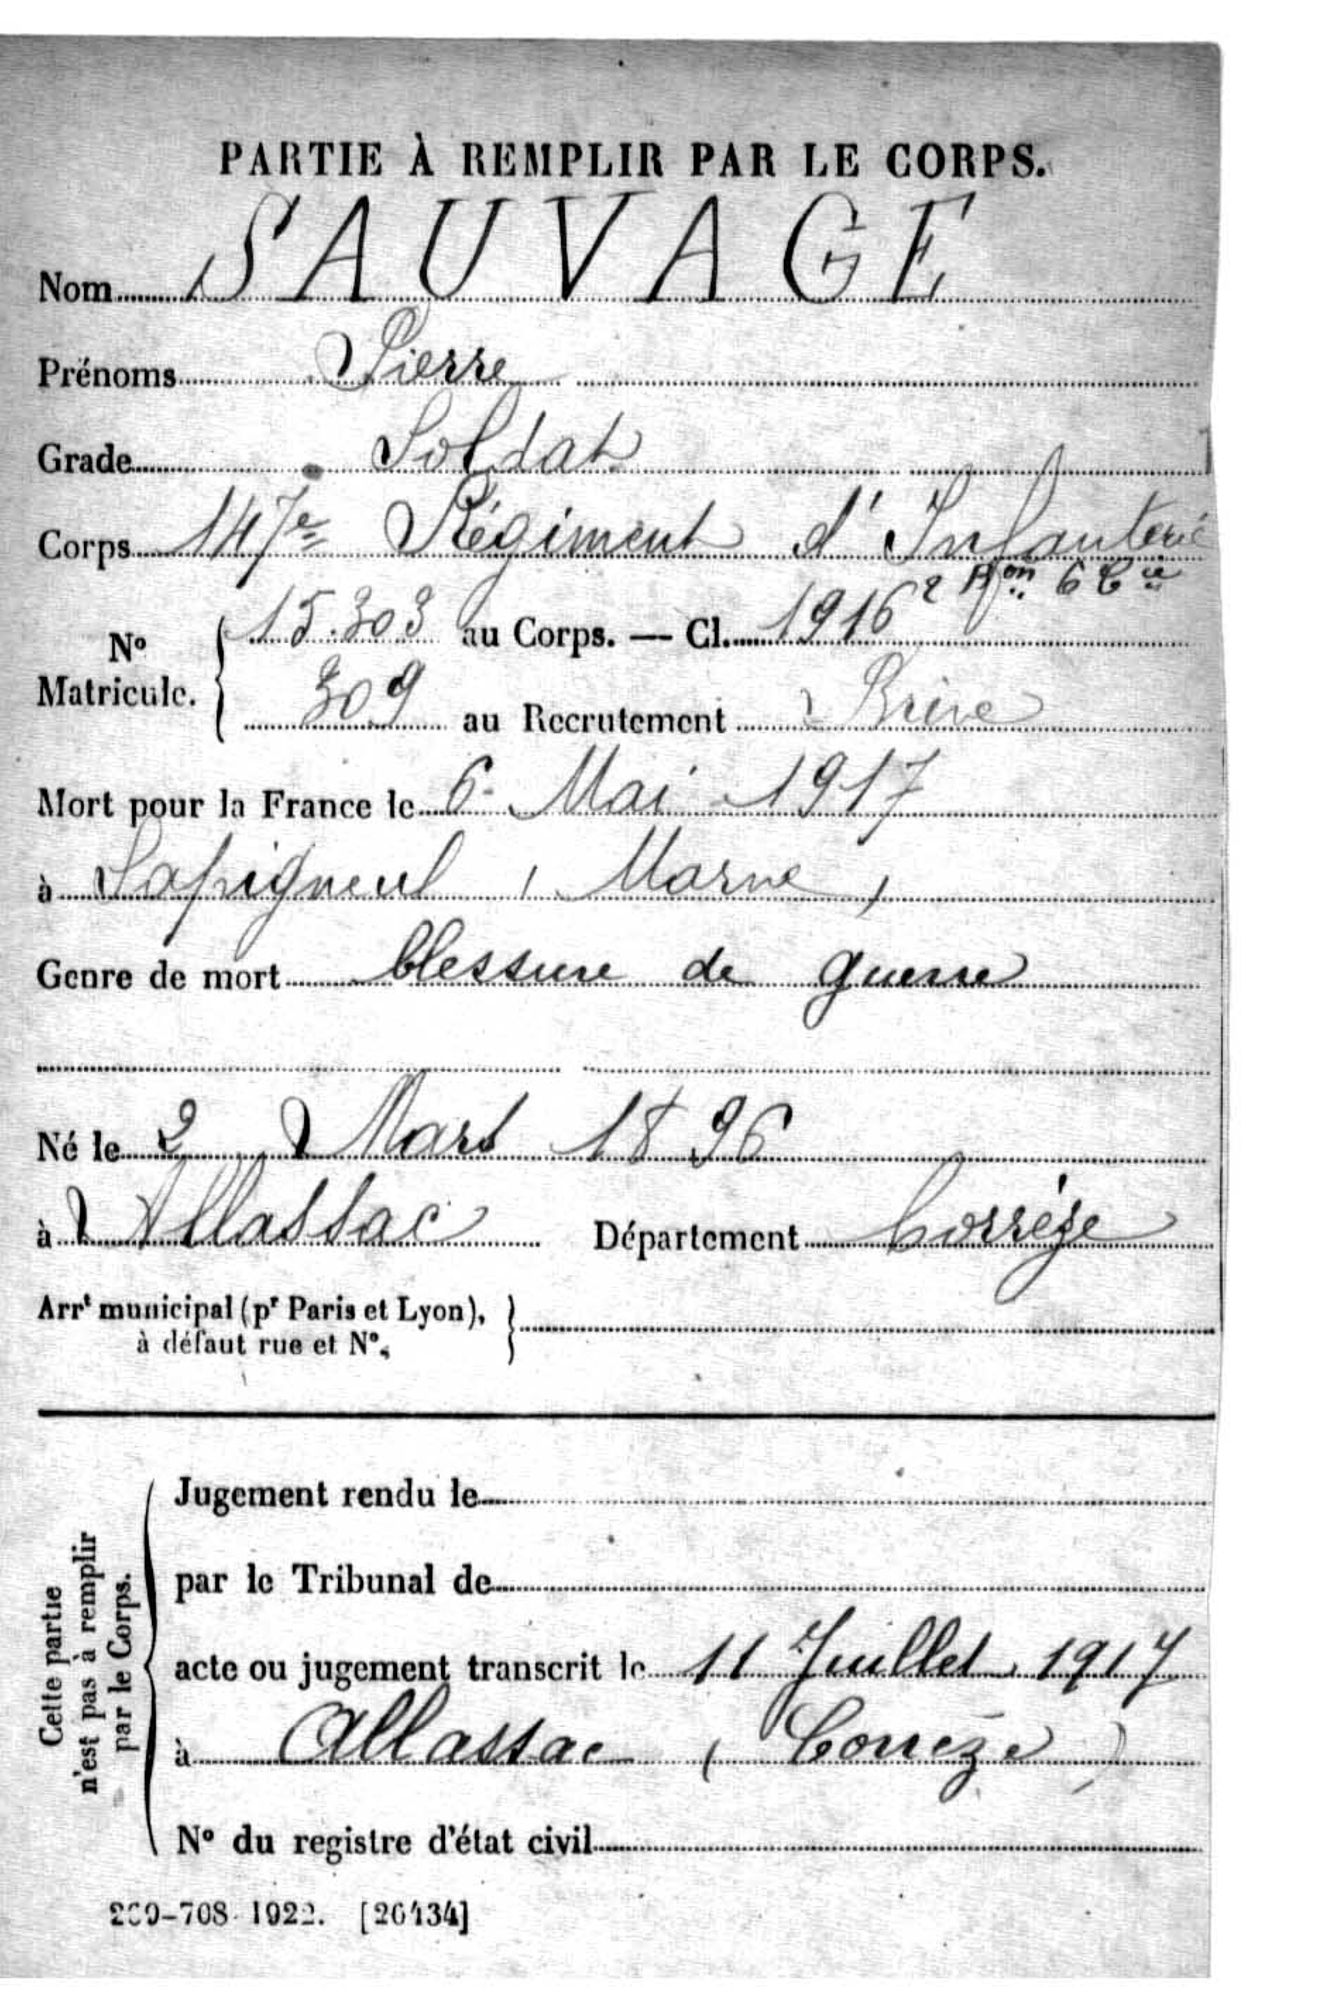 PARTIE À REMPLIR PAR LE CORPS.
Nom SAUVAGE
Prénoms Pierre
Grade Soldat
Corps 147e Régiment d'Infanterie
2 Bon 6 Cie
No Matricule. { 15.303 au Corps. — Cl. 1916
309 au Recrutement Brive
Mort pour la France le 6 Mai 1917
à Sapigneul (Marne)
Genre de mort blessure de guerre
Né le 2 Mars 1896
à Allassac Département Corrèze
Arrt municipal (pr Paris et Lyon),
à défaut rue et No.
Cette partie n'est pas à remplir par le Corps.
Jugement rendu le
par le Tribunal de
acte ou jugement transcrit le 11 Juillet 1917
à Allassac (Corrèze)
No du registre d'état civil
269-708-1922. [26434]